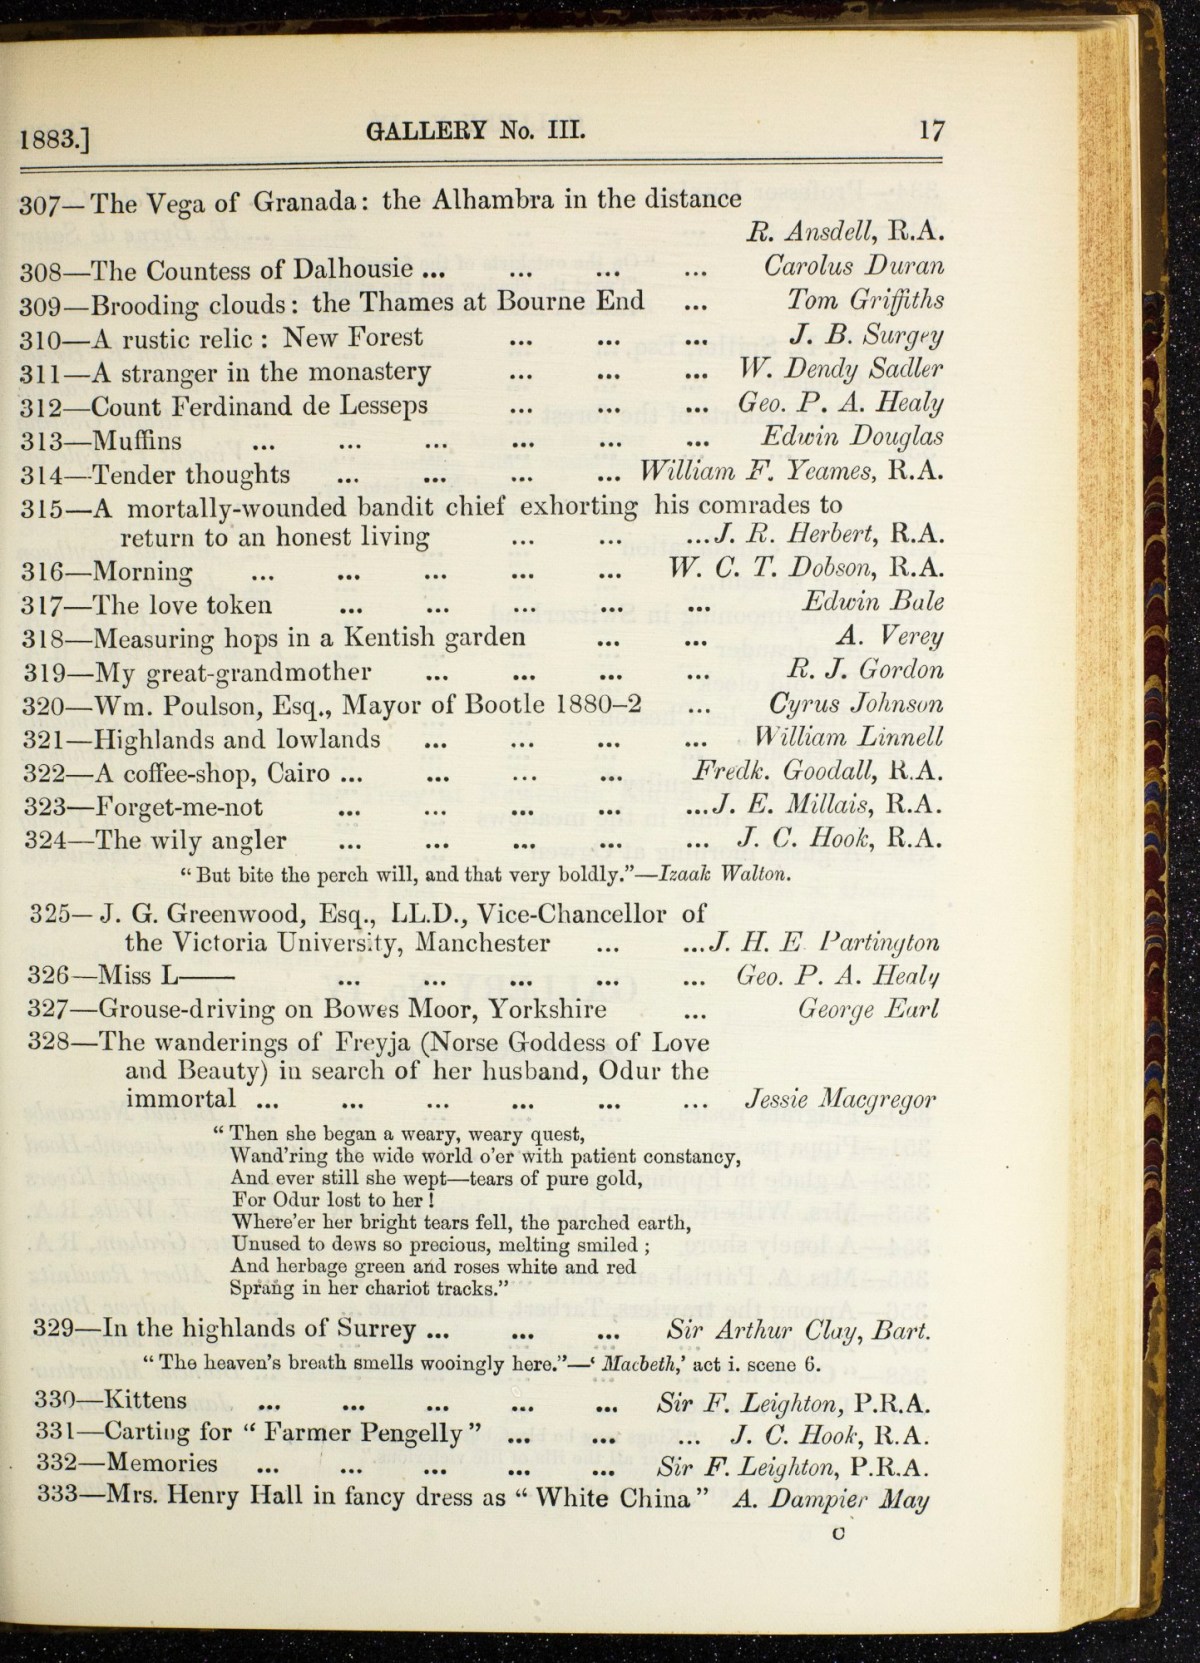 1883.] GALLERY No. III. 17
307—The Vega of Granada: the Alhambra in the distance
R. Ansdell, R.A.
308—The Countess of Dalhousie ... ... ... ... Carolus Duran
309—Brooding clouds: the Thames at Bourne End ... Tom Griffiths
310—A rustic relic : New Forest ... ... ... J. B. Surgey
311—A stranger in the monastery ... ... ... W. Dendy Sadler
312—Count Ferdinand de Lesseps ... ... ... Geo. P. A. Healy
313—Muffins ... ... ... ... ... ... Edwin Douglas
314—Tender thoughts ... ... ... ... William F. Yeames, R.A.
315—A mortally-wounded bandit chief exhorting his comrades to
return to an honest living ... ... ...J. R. Herbert, R.A.
316—Morning ... ... ... ... ... W. C. T. Dobson, R.A.
317—The love token ... ... ... ... ... Edwin Bale
318—Measuring hops in a Kentish garden ... ... A. Verey
319—My great-grandmother ... ... ... ... R. J. Gordon
320—Wm. Poulson, Esq., Mayor of Bootle 1880–2 ... Cyrus Johnson
321—Highlands and lowlands ... ... ... ... William Linnell
322—A coffee-shop, Cairo ... ... ... ... Fredk. Goodall, R.A.
323—Forget-me-not ... ... ... ... ...J. E. Millais, R.A.
324—The wily angler ... ... ... ... ... J. C. Hook, R.A.
“But bite the perch will, and that very boldly.”—Izaak Walton.
325—J. G. Greenwood, Esq., LL.D., Vice-Chancellor of
the Victoria University, Manchester ... ...J. H. E Partington
326—Miss L—— ... ... ... ... ... Geo. P. A. Healy
327—Grouse-driving on Bowes Moor, Yorkshire ... George Earl
328—The wanderings of Freyja (Norse Goddess of Love
and Beauty) in search of her husband, Odur the
immortal ... ... ... ... ... ... Jessie Macgregor
“Then she began a weary, weary quest,
Wand’ring the wide world o’er with patient constancy,
And ever still she wept—tears of pure gold,
For Odur lost to her !
Where’er her bright tears fell, the parched earth,
Unused to dews so precious, melting smiled ;
And herbage green and roses white and red
Sprang in her chariot tracks.”
329—In the highlands of Surrey ... ... ... Sir Arthur Clay, Bart.
“The heaven’s breath smells wooingly here.”—‘Macbeth,’ act i. scene 6.
330—Kittens ... ... ... ... ... Sir F. Leighton, P.R.A.
331—Carting for “Farmer Pengelly” ... ... ... J. C. Hook, R.A.
332—Memories ... ... ... ... ... Sir F. Leighton, P.R.A.
333—Mrs. Henry Hall in fancy dress as “White China” A. Dampier May
C